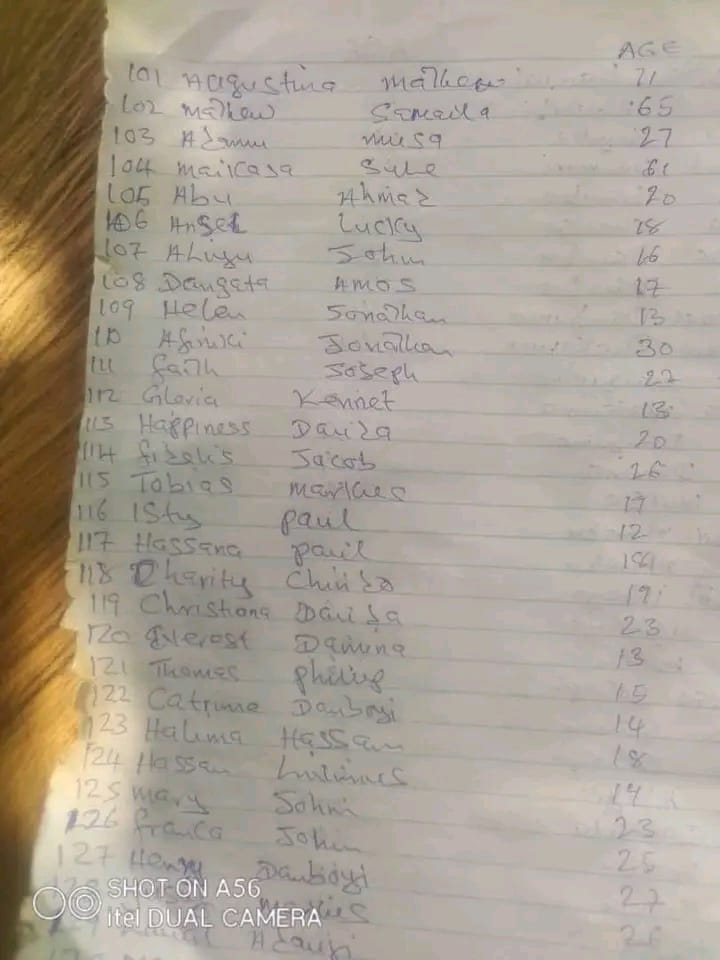 AGE
101 Augustina Mathew 71
102 Mathew Samaila 65
103 Adamu musa 27
104 maikasa Sule 61
105 Abu Ahmad 20
106 Angel Lucky 18
107 Aliyu John 16
108 Dangata Amos 17
109 Helen Jonathan 13
110 Afiniki Jonathan 30
111 faith Joseph 27
112 Gloria Kennet 13
113 Happiness Dauda 20
114 Jacob 26
115 Tobias markus 17
116 paul 12
117 Hassana paul
118 Charity 19
119 Christiana Dauda 23
120 Everest Danuna 13
121 Thomas philip 15
122 Catrine Danboyi 14
123 Halima Hassan 18
124 Hassan
125 mary John 23
126 franca John 25
127 Henry Danboyi 27
SHOT ON A56
itel DUAL CAMERA